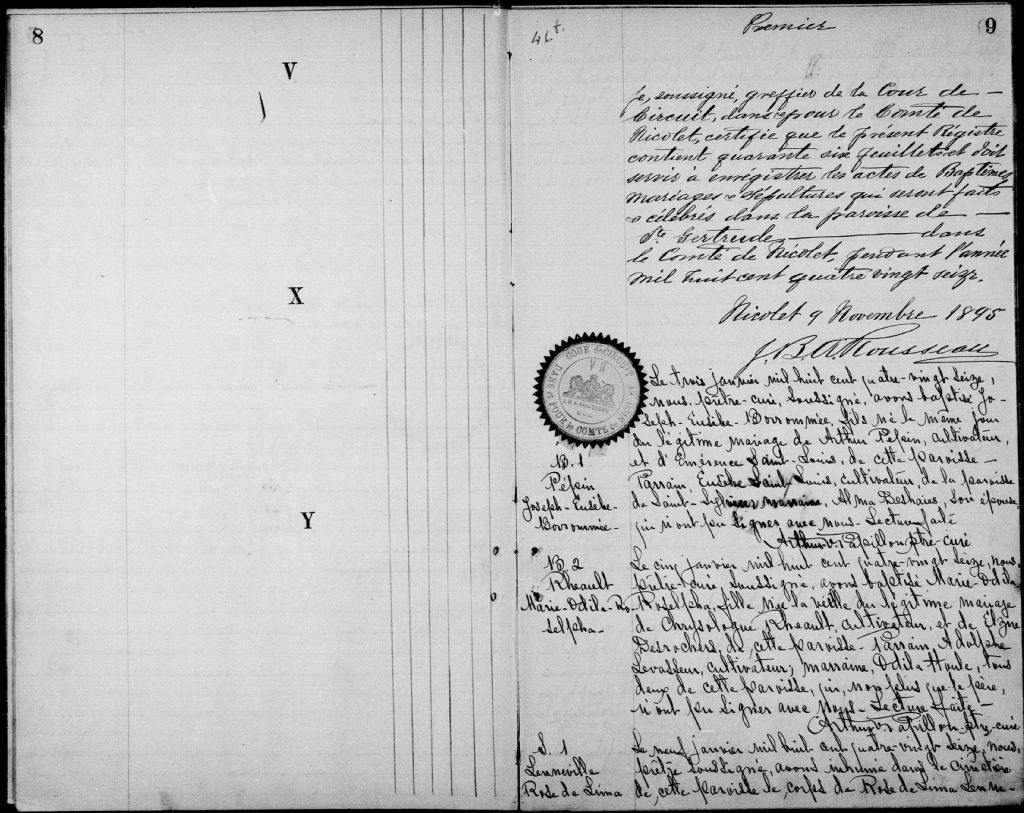 8
V
X
Y
46 t.
Premier
9
Je, soussigné, greffier de la Cour de —
Circuit, dans & pour le Comté de
Nicolet, certifie que le présent Régistre
contient quarante six feuillets et doit
servir à enregistrer les actes de Baptêmes
Mariages & Sépultures qui seront faits
& célébrés dans la paroisse de —
Ste Gertrude — dans
le Comté de Nicolet, pendant l'année
Mil huit cent quatre vingt seize.
Nicolet 9 Novembre 1895
J. B. A Rousseau
COUR de CIRCUIT
DANS & POUR le COMTE de
V R
B. 1
Pépin
Joseph-Eusèbe-
Borrommée-
Le trois janvier mil huit cent quatre-vingt seize,
nous, prêtre-curé, soussigné, avons baptisé Jo-
seph-Eusèbe-Borrommée, fils né le même jour
du légitime mariage de Arthur Pépin, cultivateur,
et d'Emérence Saint-Louis, de cette paroisse —
Parrain Eusèbe Saint-Louis, cultivateur, de la paroisse
de Saint- marraine, Alma Deshaies, son épouse
qui n'ont pu signer avec nous- Lecture faite
Arthur V. Papillon ptre-curé
B. 2
Rheault
Marie-Odila-Ro-
selpha-
Le cinq janvier mil huit cent quatre-vingt seize, nous,
prêtre-curé soussigné, avons baptisé Marie-Odila-
Roselpha, fille née la veille du légitime mariage
de Chrysologue Rheault, cultivateur, et de Elzire
Desrochers, de cette paroisse- Parrain, Adolphe
Levasseur, cultivateur; marraine, Odila Houle, tous
deux de cette paroisse, qui, non plus que le père,
n'ont pu signer avec Nous- Lecture faite-
Arthur V. Papillon ptre-curé
S. 1
Lenneville
Rose de Lima
Le neuf janvier mil huit cent quatre-vingt seize, nous,
prêtre soussigné, avons inhumé dans le cimetière
de cette paroisse le corps de Rose de Lima Lenne-